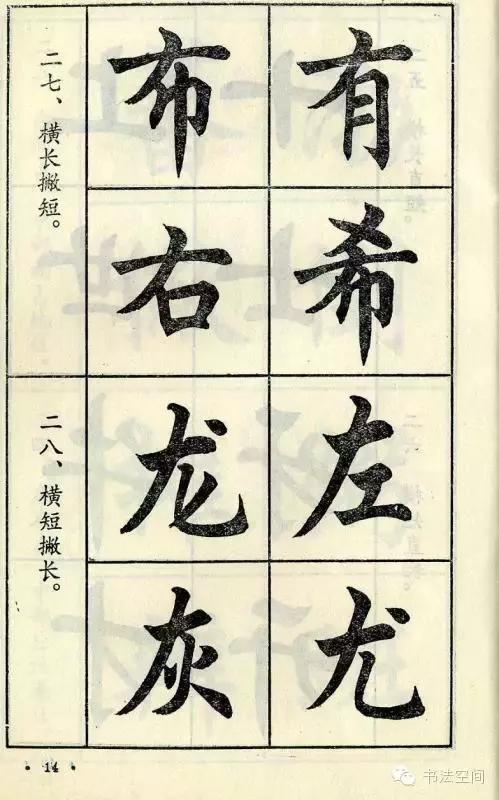 二七、横长撇短。
有布
希右
二八、横短撇长。
左龙
尤灰
14
书法空间